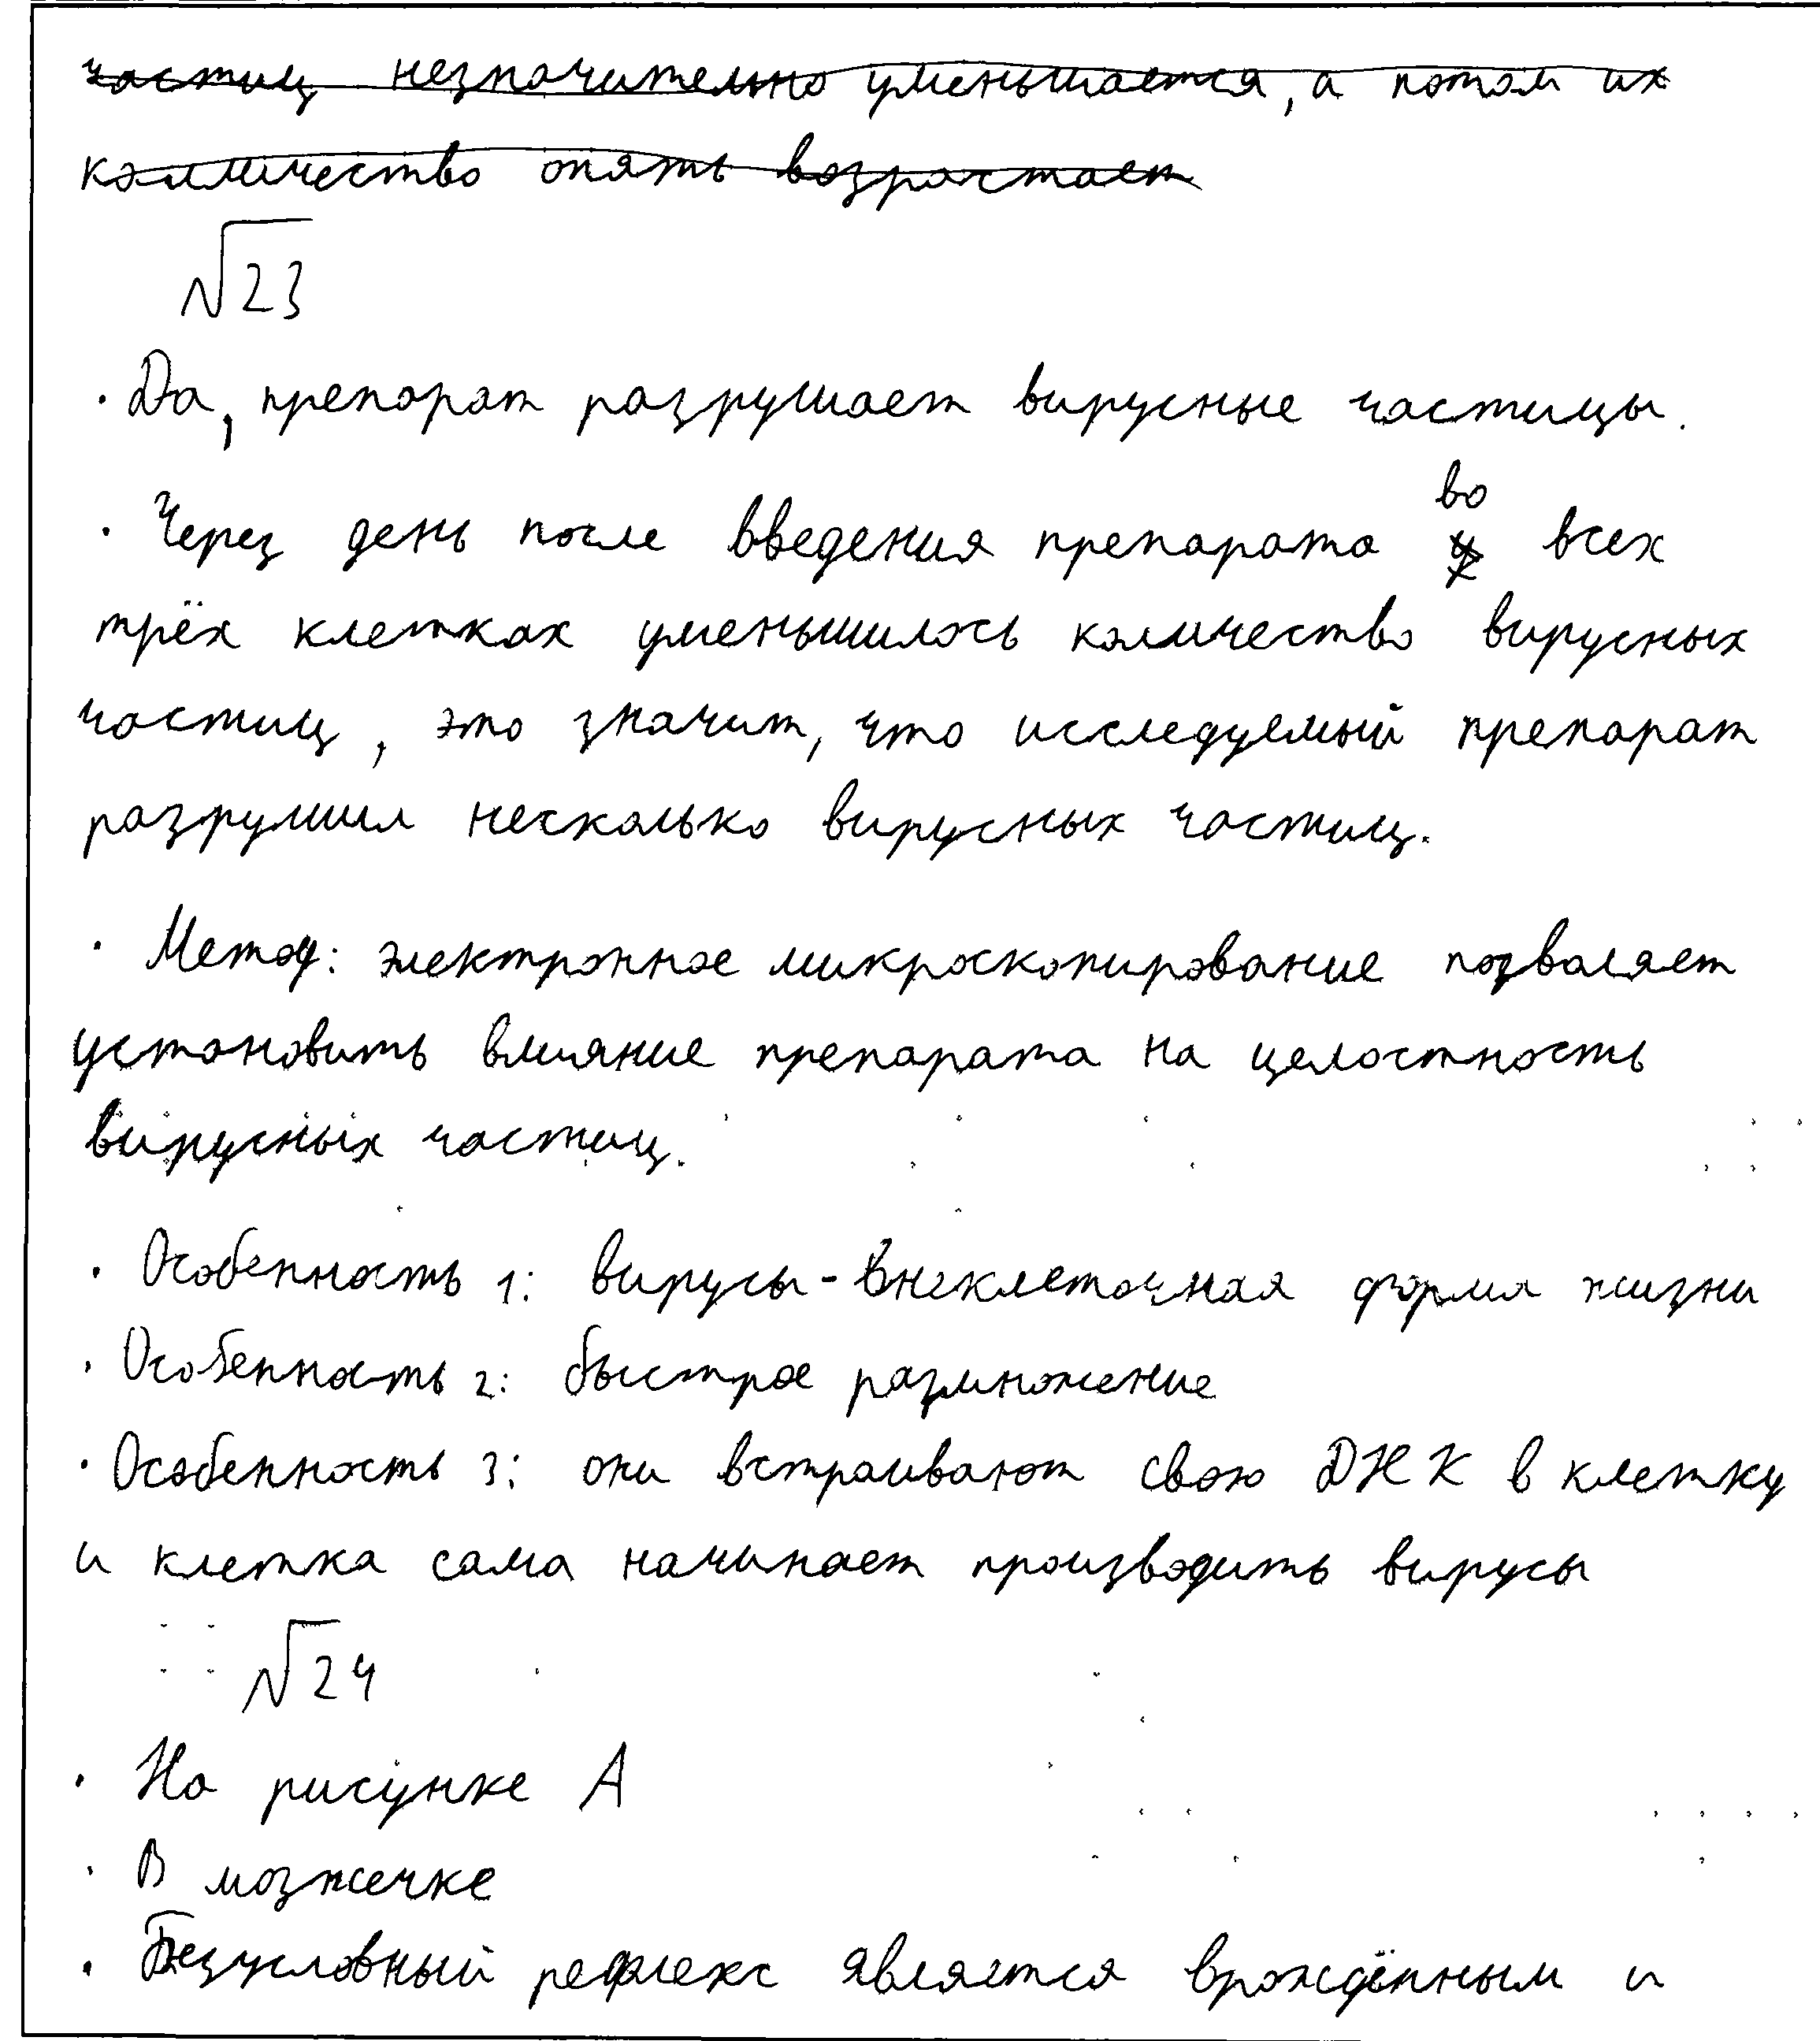 частиц незначительно уменьшается, а потом их
количество опять возрастает
√23
· Да, препарат разрушает вирусные частицы.
· Через день после введения препарата во всех
трёх клетках уменьшилось количество вирусных
частиц, это значит, что исследуемый препарат
разрушил несколько вирусных частиц.
· Метод: электронное микроскопирование позваляет
установить влияние препарата на целостность
вирусных частиц.
· Особенность 1: вирусы - внеклеточная форма жизни
· Особенность 2: быстрое размножение
· Особенность 3: они встраивают свою ДНК в клетку
и клетка сама начинает производить вирусы
√24
· На рисунке А
· В мозжечке
· Безусловный рефлекс является врождённым и